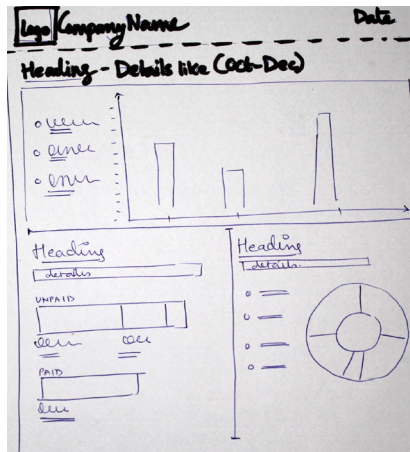 Logo CompanyName Date
Heading - Details like (Oct-Dec)
Heading
details
UNPAID
PAID
Heading
details.